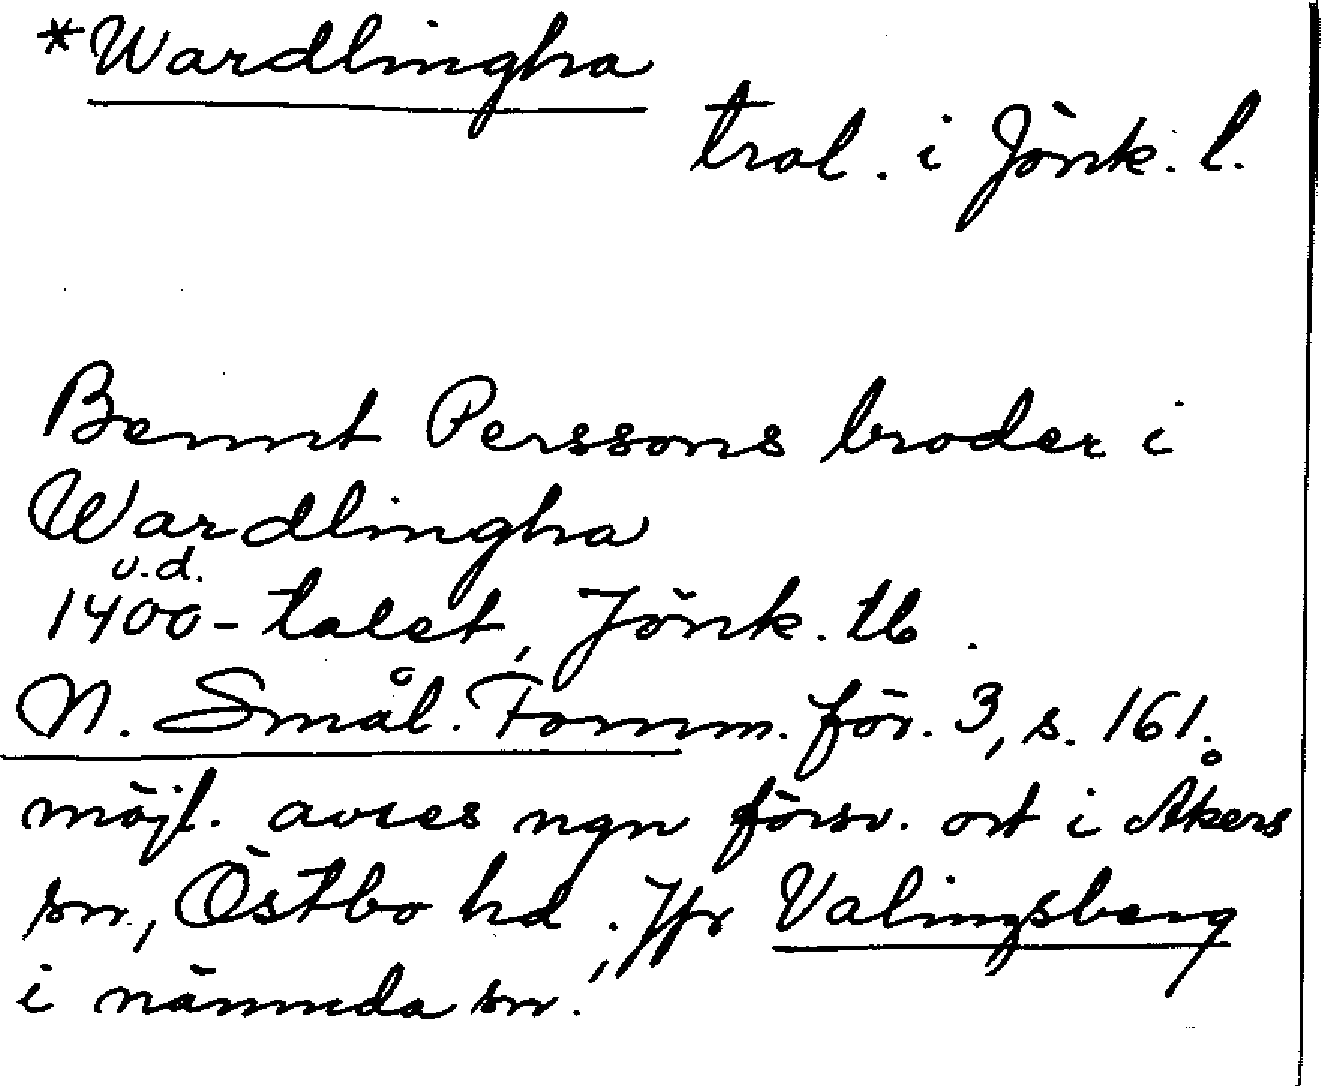 *Wardlingha
tral. i Jönk. l.
Bennt Perssons broder i
Wardlingha
u.d.
1400-talet, Jönk. tb.
N. Smål. Fornm. för. 3, s. 161.
möjl. avses ngn försv. ort i Åkers
sn, Östbo hd. Jfr Valingsberg
i nämnda sn.